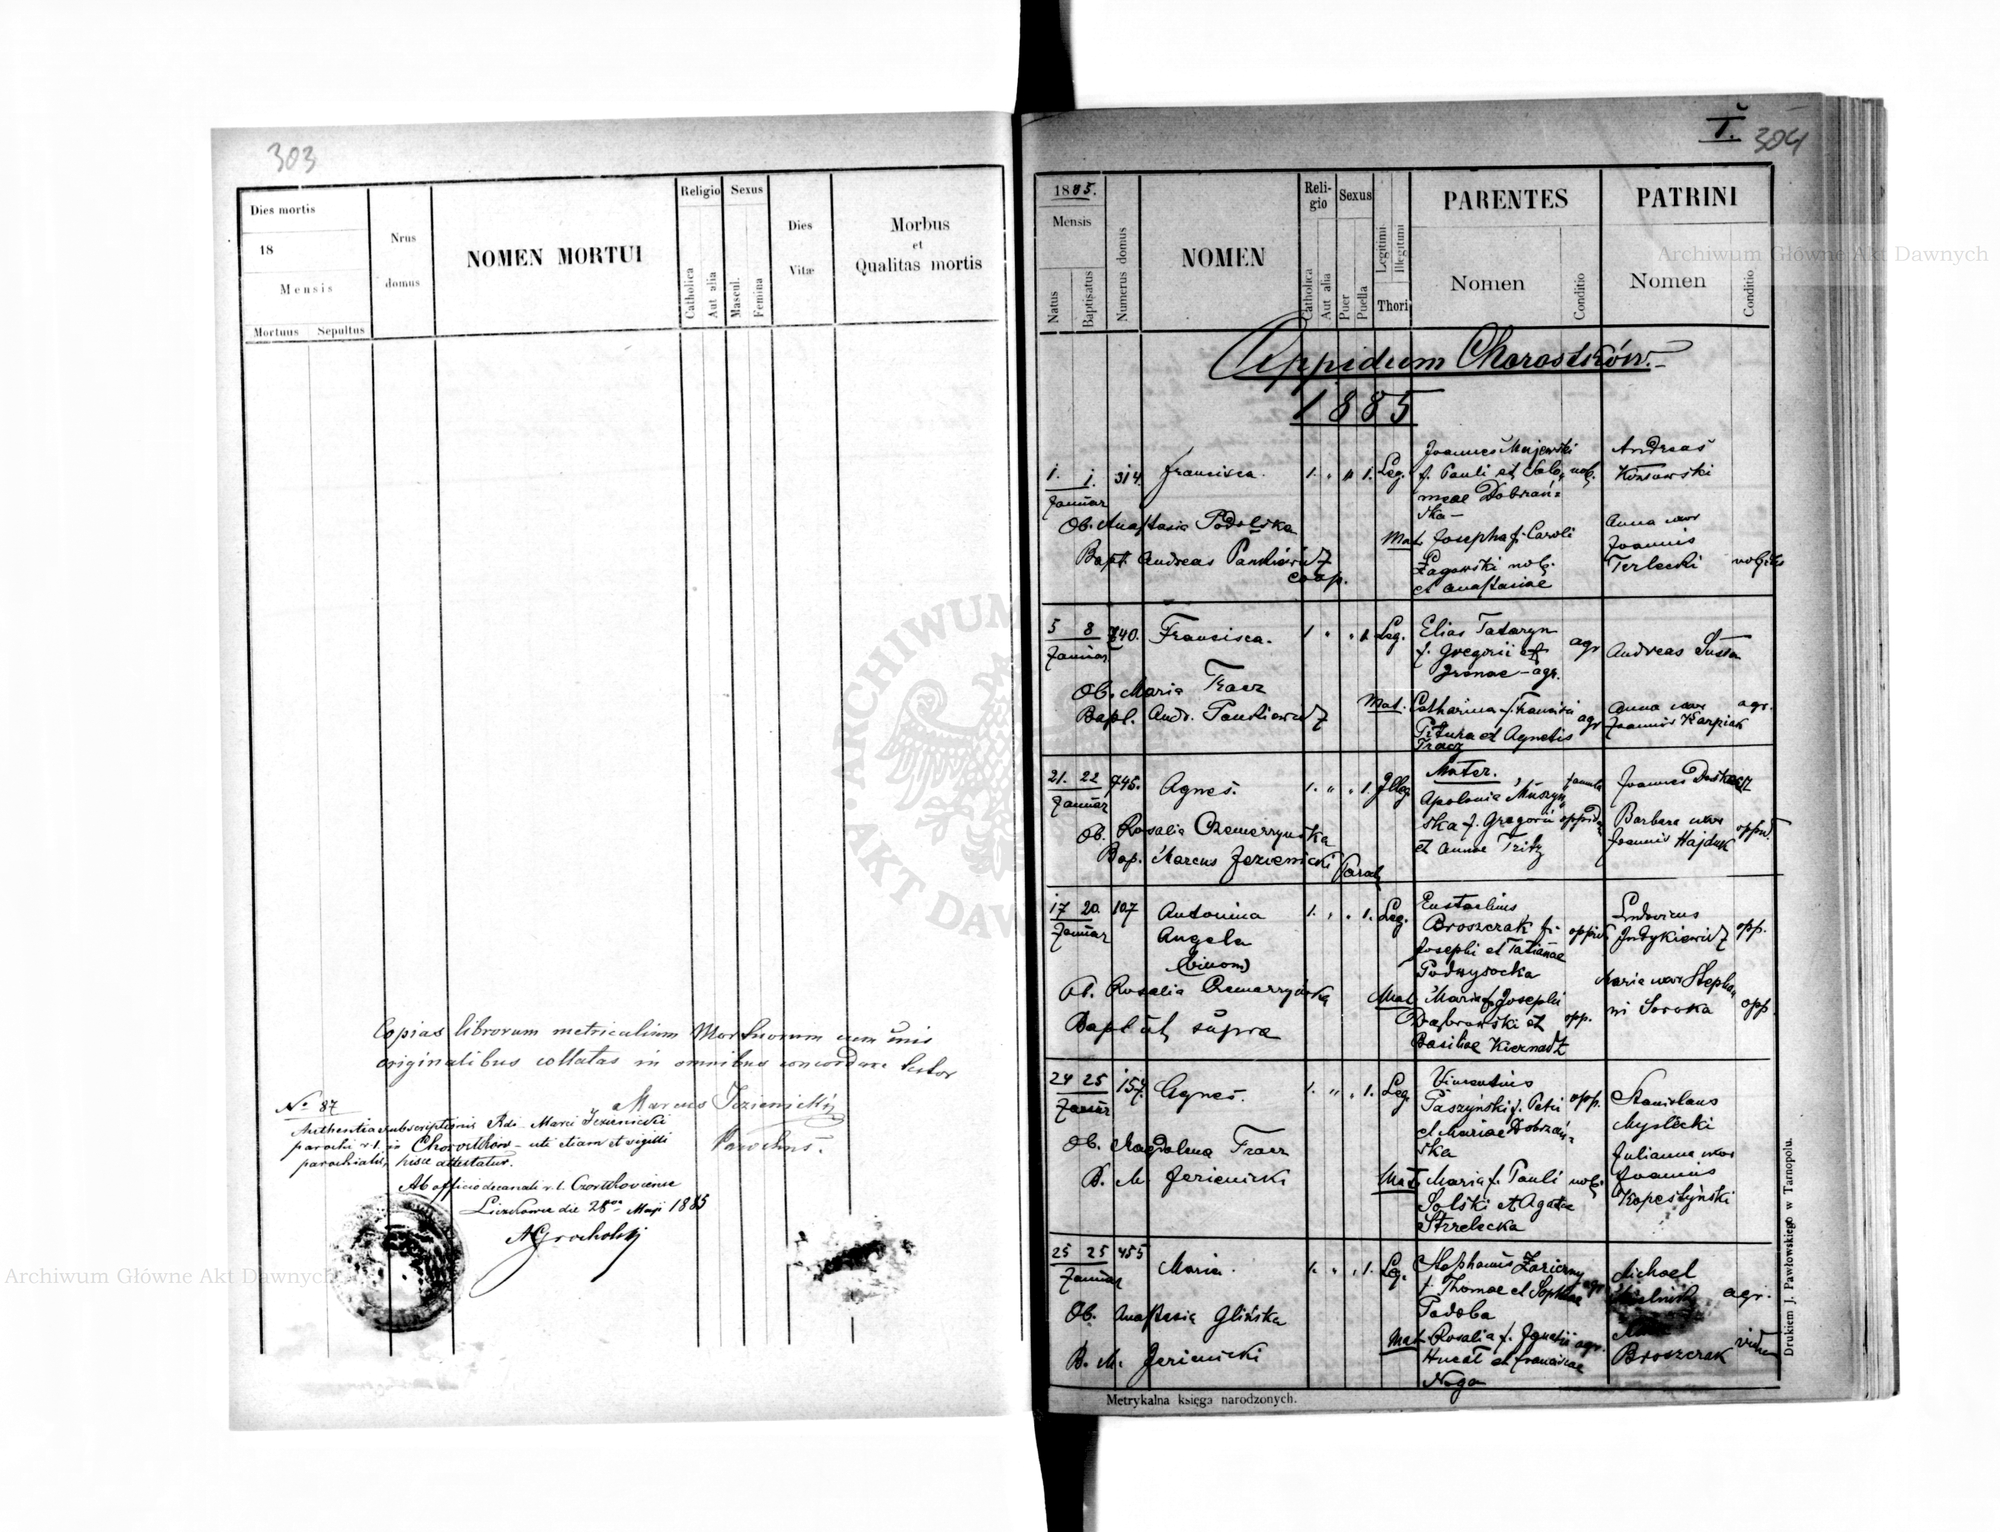 303
Dies mortis
18
Mensis
Mortuus Sepultus
Nrus domus
NOMEN MORTUI
Religio
Catholica
Aut alia
Sexus
Mascul.
Femina
Dies Vitæ
Morbus
et
Qualitas mortis
Copias librorum metricalium Mortuorum cum suis
originalibus collatas in omnibus concordare testor
Marcus Jezienicki
Parochus.
No 87
Authentia subscriptionis Rdi Marci Jezienicki
parochi r. l. in Chorostków uti etiam et sigilli
parochialis, hisce attestatur.
Ab officio decanali r. l. Czortkoviense
die 28va Maji 1885
AGrocholskj
I.
304
1885.
Mensis
Natus
Baptisatus
Numerus domus
NOMEN
Religio
Catholica
Aut alia
Sexus
Puer
Puella
Legitimi
Illegitimi
Thori
PARENTES
Nomen
Conditio
PATRINI
Nomen
Conditio
Oppidum Chorostków.
1885
1. 1. 314. Francisca. 1. " " 1. Leg.
Januar
Joannes Majewski
f. Pauli et Salo= nob.
meae Dobrzań=
ska
Andreas
Ob. Anastasia Podolska
Mat. Josepha f. Caroli
Zagórski nob.
et Anastasiae
Anna uxor
Joannis
Terlecki
Bapt. Andreas Pankiewicz
coop.
5 8 740. Francisca. 1 " " 1. Leg.
Januar
Elias Tataryn agr
f. Gregorii et
Irenae agr.
Andreas Susta
Ob. Maria Tracz
Bapt. And. Pankiewicz
Mat. Catharina f. Francisci agr
Pitura et Agnetis
Tracz
Anna uxor agr.
Joannis Karpiak
21. 22 745. Agnes. 1. " " 1. Illeg
Januar
Mater.
Apolonia Muszyń
ska f. Gregorii
et Annae
Joannes
Barbara uxor
Joannis Hajduk
Ob. Rosalia Czemerzyńska
Bap. Marcus Jezienicki Paroch
17 20. 107 Antonina 1. " " 1. Leg.
Januar
Angela
(binom)
Eustachius
Broszczak f.
Josephi et Tatianae
Podwysocka
Ludovicus
Indykiewicz opp.
Ob. Rosalia Czemerzyńska
Bapt ut supra
Mat. Maria f. Josephi
Dąbrowski et opp.
Basiliae Kiernacz
Maria uxor Stepha
ni Soroka opp
24 25 157. Agnes. 1. " " 1. Leg
Januar
Vincentius
Paszyński f. Petri opp.
et Mariae Dobrzań=
ska
Stanislaus
Myslecki
Ob. Magdalena Tracz
B. M. Jezienicki
Mat. Maria f. Pauli nob.
Solski et Agatae
Strzelecka
Julianna uxor
Joannis
Kopestyński
25 25 455 Maria. 1. " " 1. Leg.
Januar
Stephanus Zariczny
f. Thomae et Sophiae agr
Podoba
Michael
agr.
Ob. Anastasia Glińska
B. M. Jezienicki
Mat. Rosalia f. Ignatii agr.
Hucał et Franciscae
Noga
Broszczak
Metrykalna księga narodzonych.
Drukiem J. Pawłowskiego w Tarnopolu.
ARCHIWUM GŁÓWNE AKT DAWNYCH
Archiwum Główne Akt Dawnych
Archiwum Główne Akt Dawnych